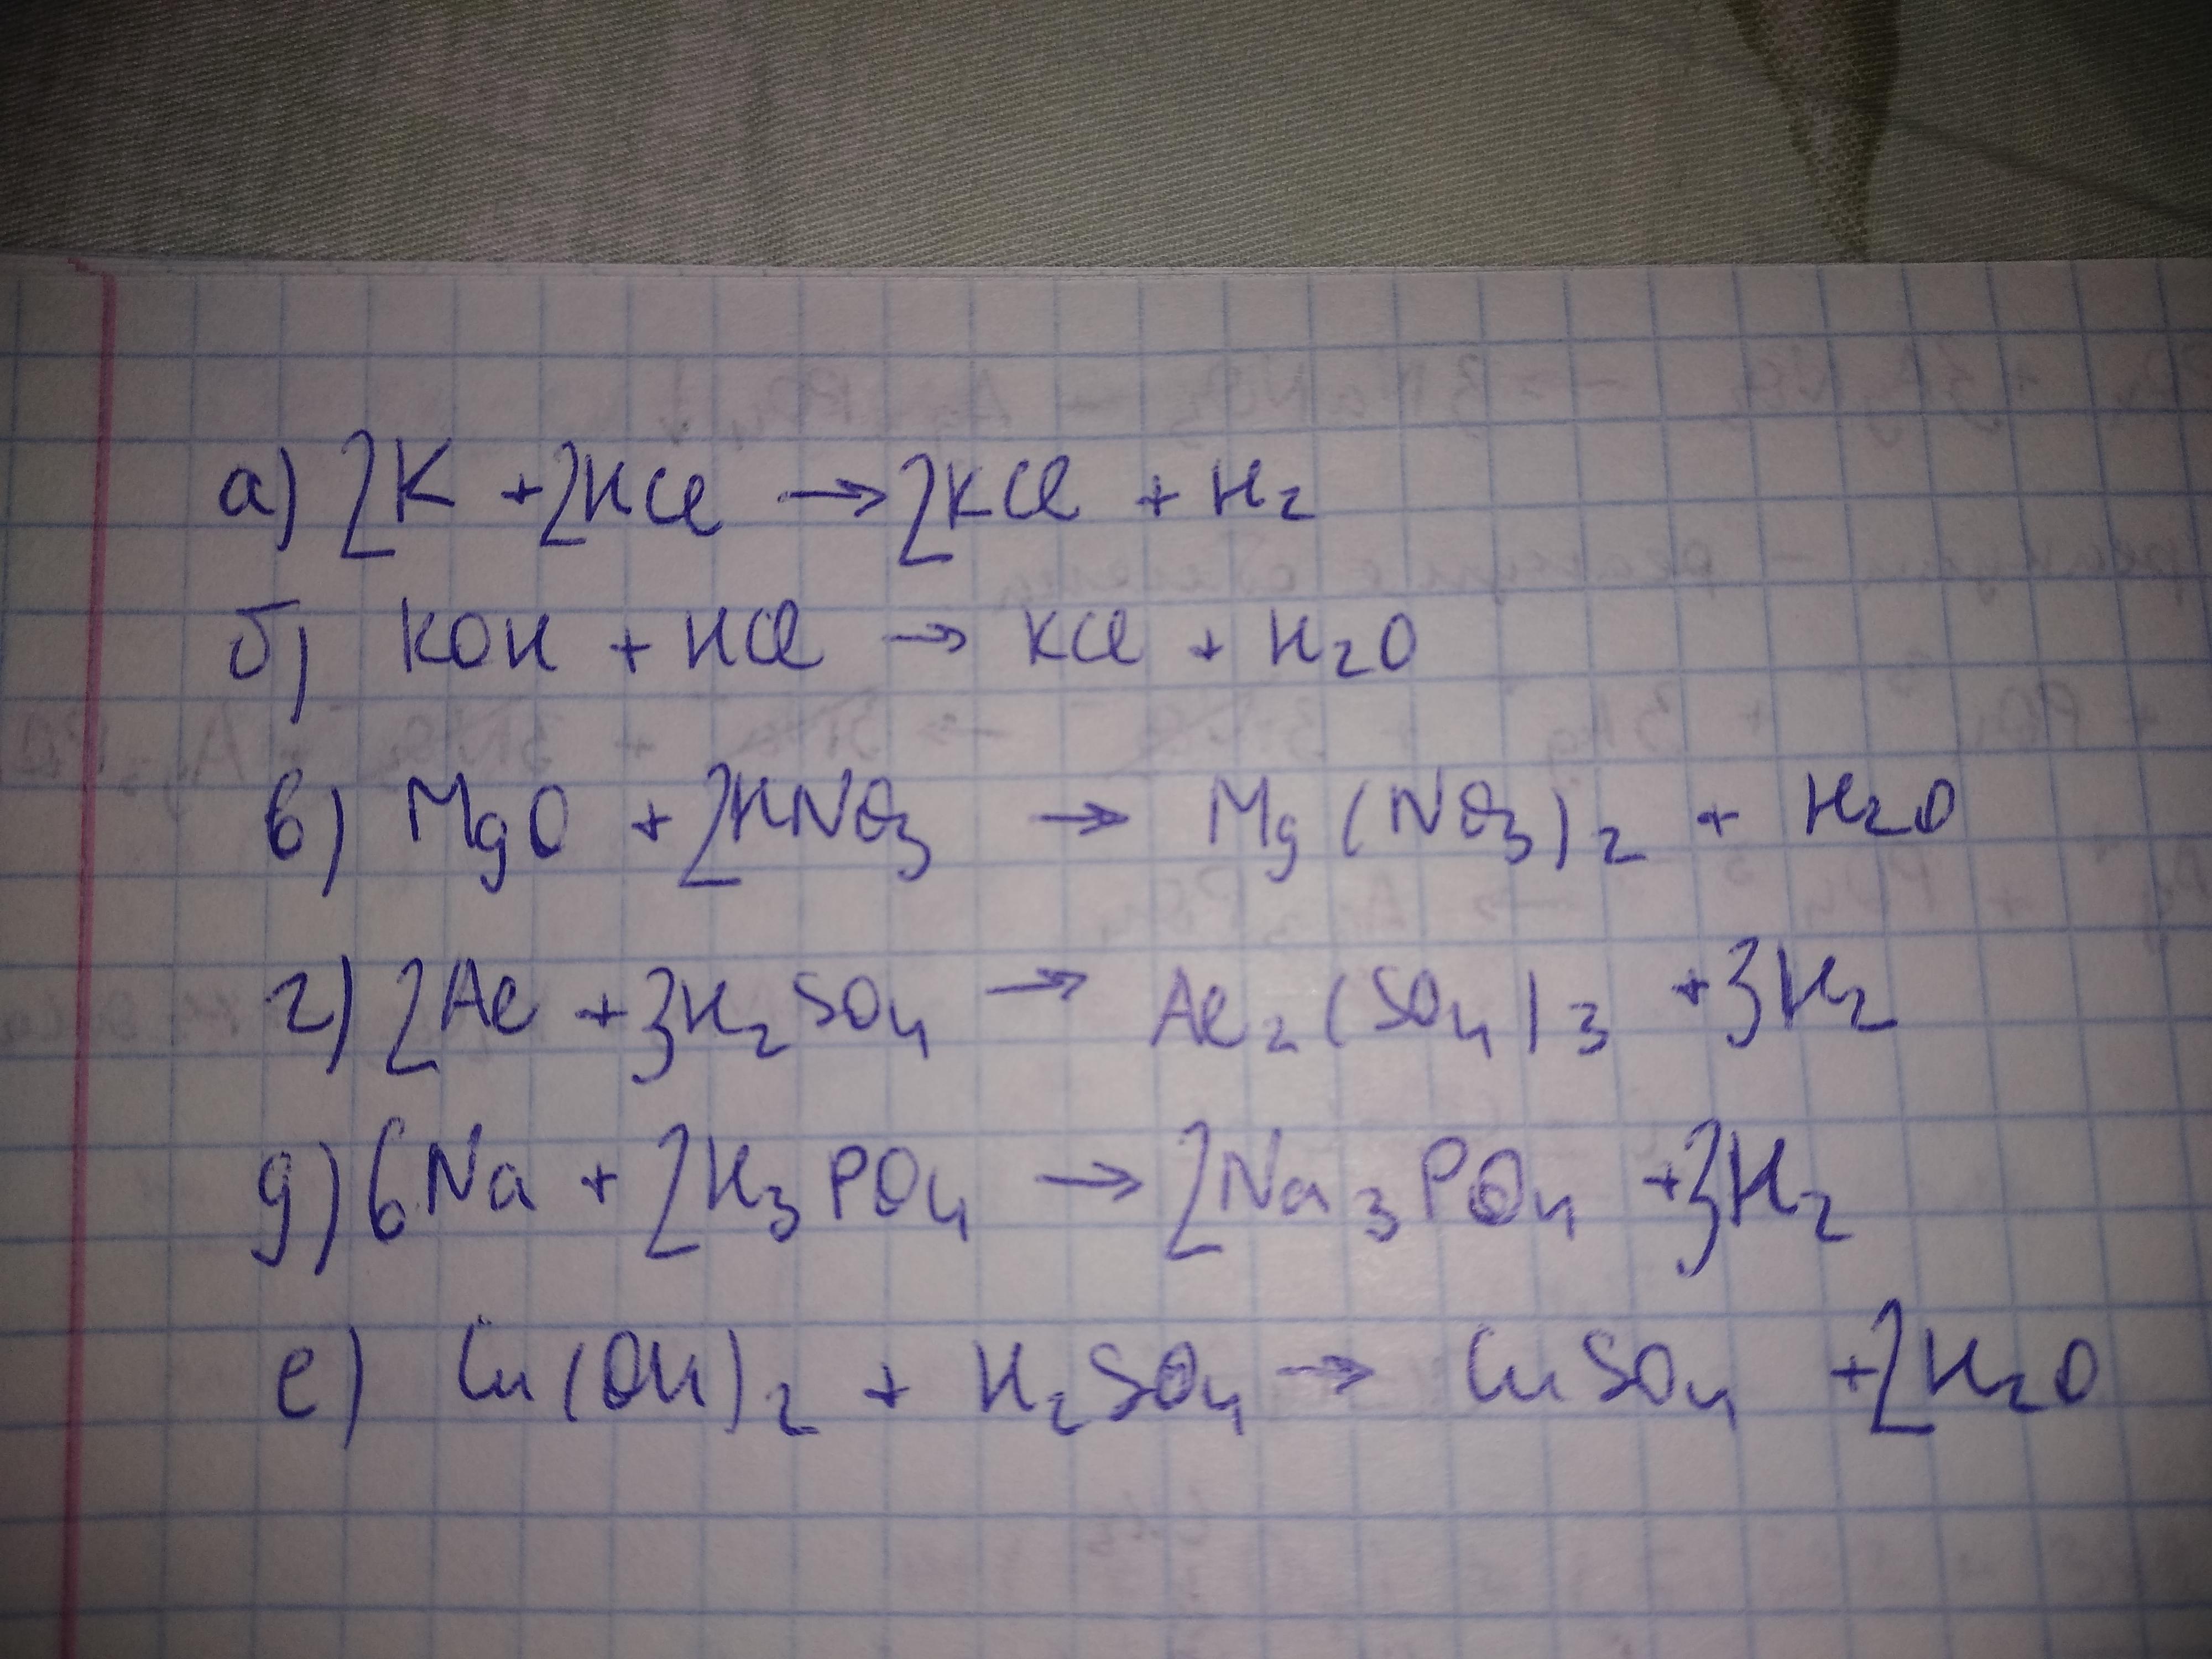 а) 2K + 2HCl → 2KCl + H₂
б) KOH + HCl → KCl + H₂O
в) MgO + 2HNO₃ → Mg(NO₃)₂ + H₂O
г) 2Al + 3H₂SO₄ → Al₂(SO₄)₃ + 3H₂
д) 6Na + 2H₃PO₄ → 2Na₃PO₄ + 3H₂
е) Cu(OH)₂ + H₂SO₄ → CuSO₄ + 2H₂O